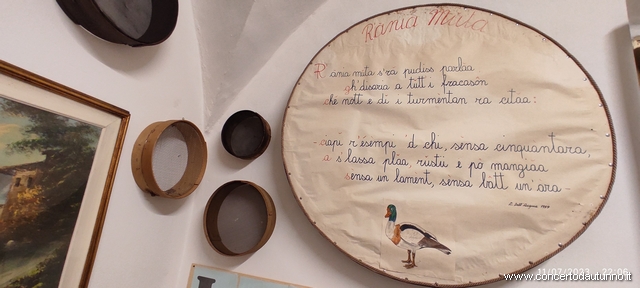 Rania Mita
Rania mita s'ra pudiss parlaa
gh'disaria a tütt i fracasòn
che nött e dì i turmentan ra citaa:
-ciapì r'esempi 'd chi, sensa cinquantara,
a s'lassa plàa, rüstii e pö mangiaa
sensa un lament, sensa bàtt un'ara-
11/07/2023 22:06
www.concertodautunno.it